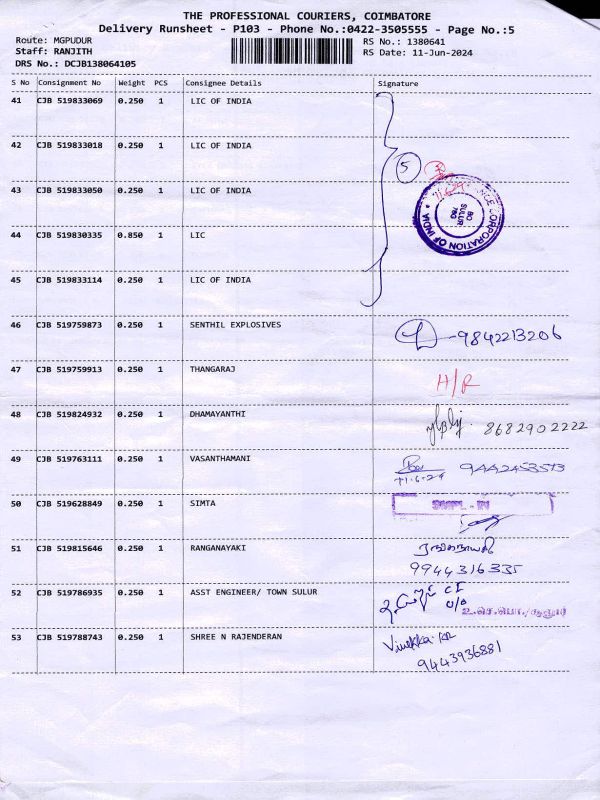 THE PROFESSIONAL COURIERS, COIMBATORE
Delivery Runsheet - P103 - Phone No.:0422-3505555 - Page No.:5
Route: MGPUDUR
RS No.: 1380641
Staff: RANJITH
RS Date: 11-Jun-2024
DRS No.: DCJB138064105
S No Consignment No Weight PCS Consignee Details Signature
41 CJB 519833069 0.250 1 LIC OF INDIA
42 CJB 519833018 0.250 1 LIC OF INDIA
5
43 CJB 519833050 0.250 1 LIC OF INDIA
CORPORATION OF INDIA
BO
SULUR
44 CJB 519830335 0.850 1 LIC
45 CJB 519833114 0.250 1 LIC OF INDIA
46 CJB 519759873 0.250 1 SENTHIL EXPLOSIVES
-9842213206
47 CJB 519759913 0.250 1 THANGARAJ
H/R
48 CJB 519824932 0.250 1 DHAMAYANTHI
8682902222
49 CJB 519763111 0.250 1 VASANTHAMANI
11.6.24
50 CJB 519628849 0.250 1 SIMTA
51 CJB 519815646 0.250 1 RANGANAYAKI
ரங்கநாயகி
9944316335
52 CJB 519786935 0.250 1 ASST ENGINEER/ TOWN SULUR
உ.செ.பொ./சூலூர்
53 CJB 519788743 0.250 1 SHREE N RAJENDERAN
9443936881